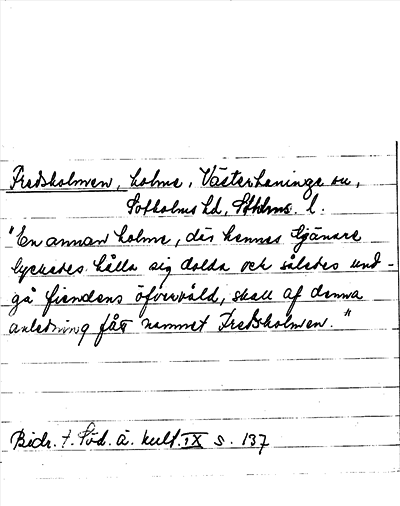 Fredsholmen, holme, Västerhaninge sn,
Sotholms hd, Sthlms l.
"En annan holme, där hennes tjänare
lyckades hålla sig dolda och således und-
gå fiendens öfvervåld, skall af denna
anledning fått namnet Fredsholmen."
Bidr. t. Söd. ä. kult. IX s. 137